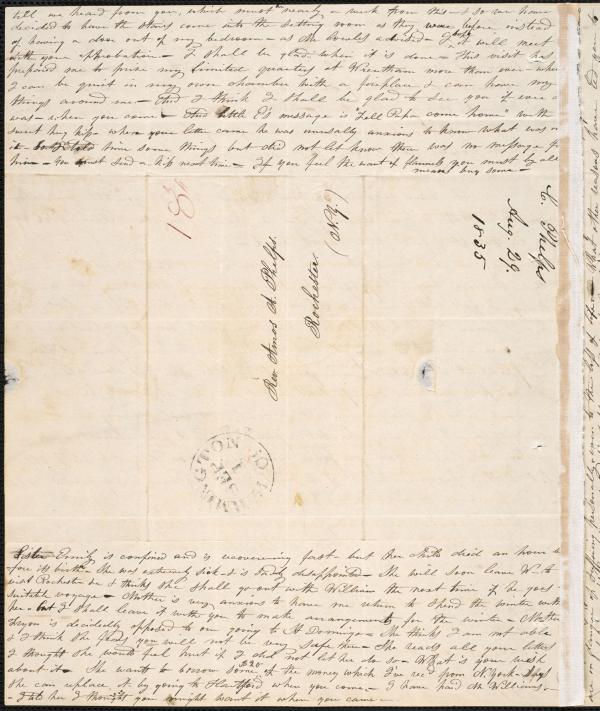 till we heard from you, which must nearly a week from this — so we have
decided to have the stairs come into the setting room as they were before instead
of having a door out of my bedroom — as the advised — I hope it will meet
with your approbation — I shall be glad when it is done — This visit has
prepared me to prize my limited quarters at Wrentham more than ever — when
I can be quiet in my own chamber with a fireplace & can have my
things around me — And I think I shall be glad to see you if ever I
was — when you come — And little E's message is "Tell Papa come home" with
sweet kiss — when your letter came he was unusually anxious to know what was in
it — told him some things but did not let know there was no message for
him — You must send a kiss next time — If you feel the want of flannels you must by all
means buy some —
18¾
Rev. Amos A. Phelps.
Rochester.
(N.Y.)
C. Phelps
Aug. 29.
1835
FARMINGTON CO.
SEP
1
Sister Emily is confined and is recovering fast — but her child died an hour be
fore its birth. She was extremely sick & is sadly disappointed — She will soon leave W— to
visit Rochester & I think she shall go out with William the next time if he goes
suitable voyage — Mother is very anxious to have me when to spend the winter with
her — but I shall leave it with you to make arrangements for the winter — Mother
is decidedly opposed to our going to St Domingo — She thinks I am not able
& I think she fears you will not be safe there — She reads all your letters
I thought she would feel hurt if I did not let her do so — What is your wish
about it — She wants to borrow some $20 of the money which I've rec'd from N. York — says
she can replace it by going to Hartford when you come — I have paid Mr Williams —
I told her I thought you might want it when you came —